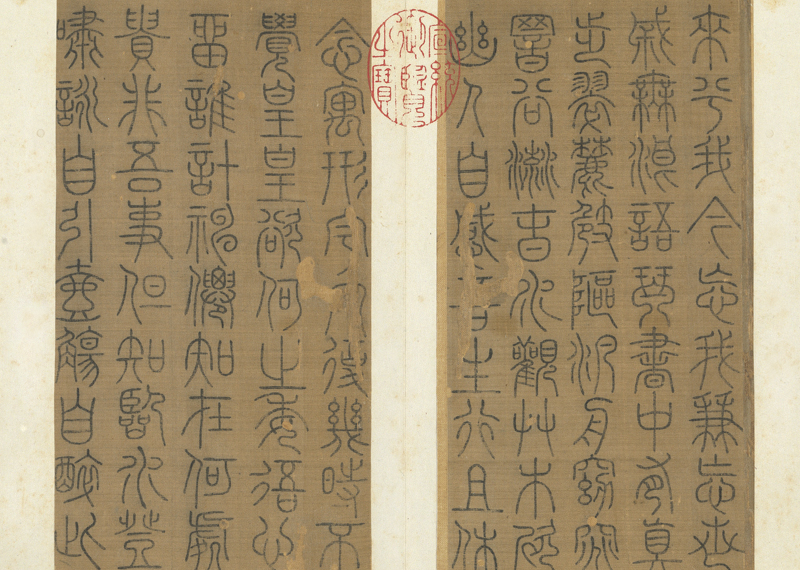 來兮我今忘我兼忘世
戚無浪語琴書中有真
步翠麓崎嶇汎舟窈窕
暗谷流春水觀艸木欣
幽人自感吾生行且休
宣統御覽之寶
念寓形宇內復幾時不
覺皇皇欲何之委吾心
留誰計神僊知在何處
貴非吾事但知臨水登
嘯詠自引壺觴自醉此